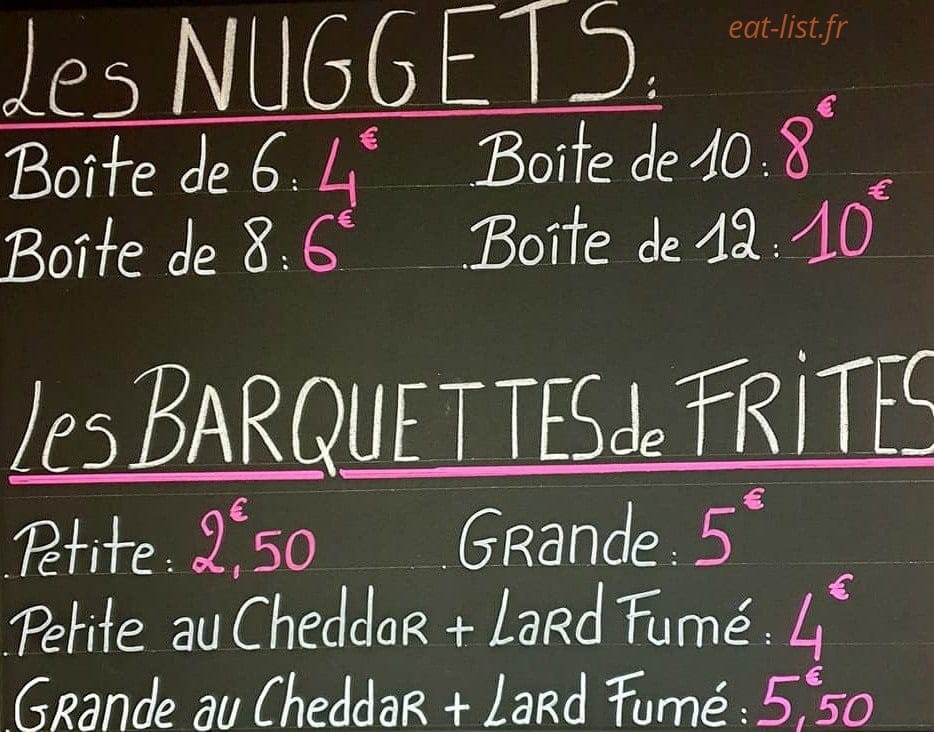 eat-list.fr
Les NUGGETS:
Boîte de 6: 4€ Boîte de 10: 8€
Boîte de 8: 6€ Boîte de 12: 10€
Les BARQUETTES de FRITES
Petite: 2€,50 Grande: 5€
Petite au Cheddar + Lard Fumé: 4€
Grande au Cheddar + Lard Fumé: 5€,50